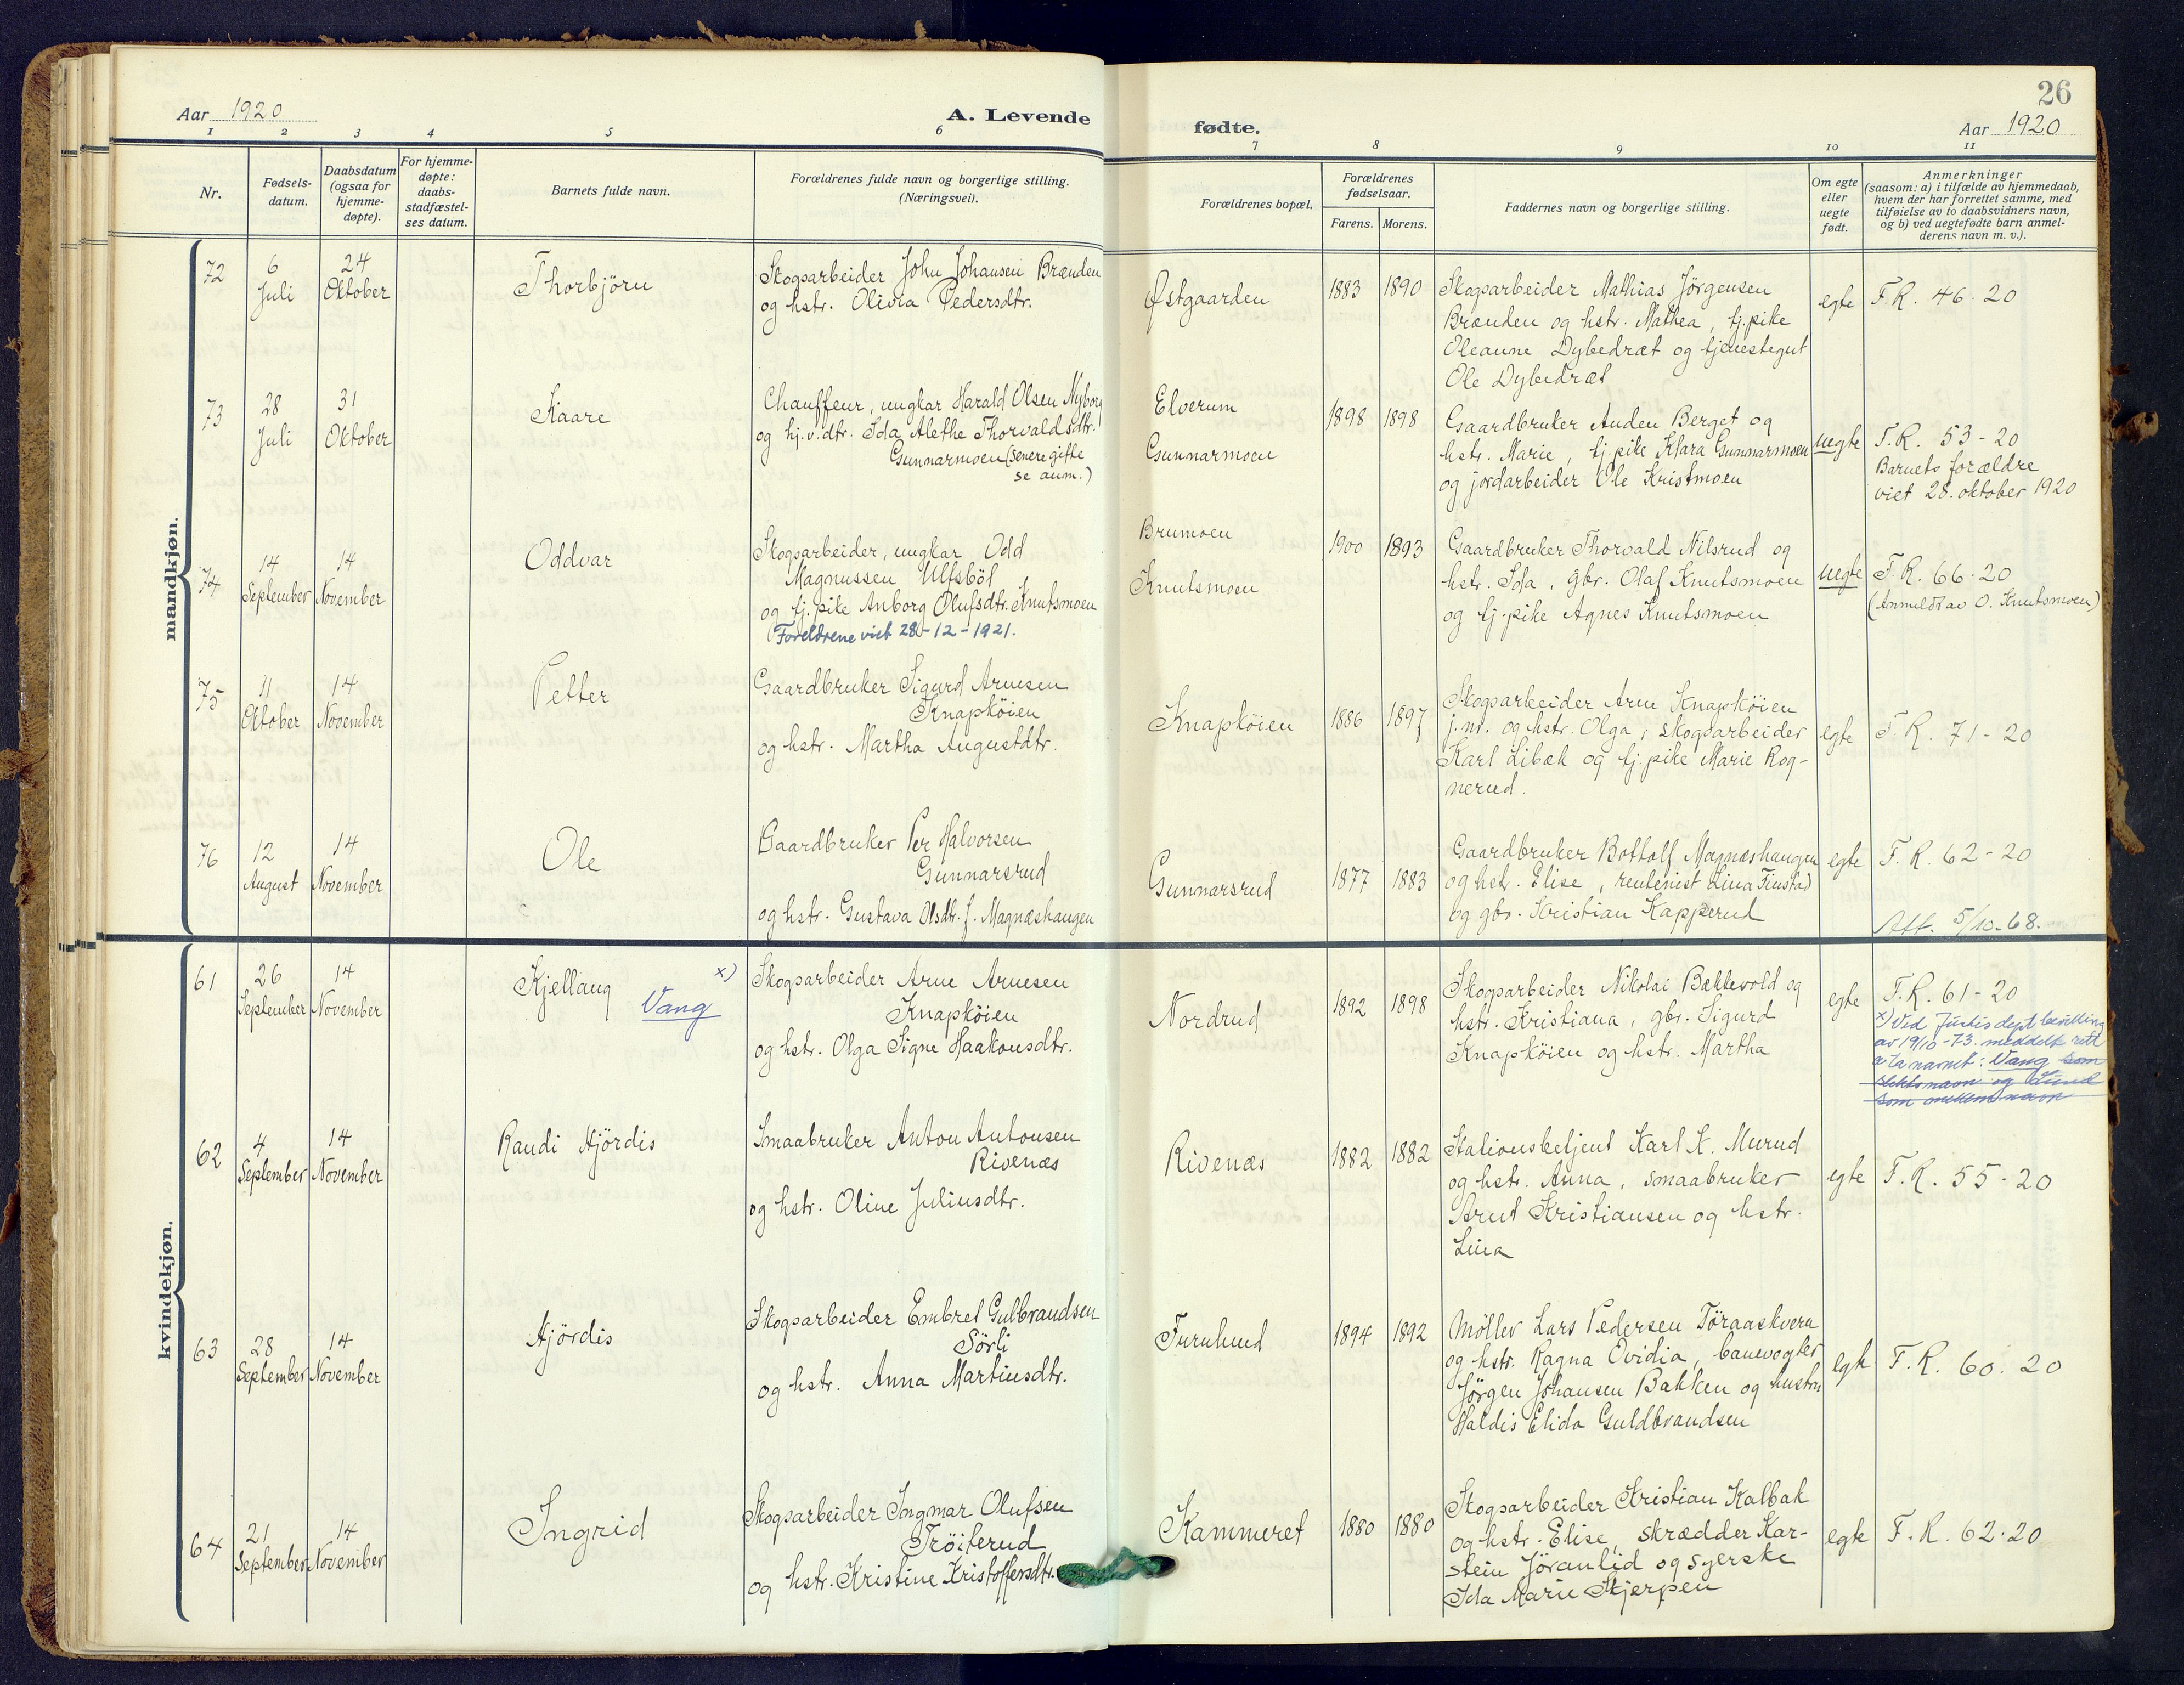 26
Aar 1920
A. Levende
fødte.
Aar 1920
1 2 3 4 5 6 7 8 9 10 11
Nr.
Fødsels-
datum.
Daabsdatum
(ogsaa for
hjemme-
døpte).
For hjemme-
døpte:
daabs-
stadfæstel-
ses datum.
Barnets fulde navn.
Forældrenes fulde navn og borgerlige stilling.
(Næringsvei).
Forældrenes bopæl.
Forældrenes
fødselsaar.
Farens. Morens.
Faddernes navn og borgerlige stilling.
Om egte
eller
uegte
født.
Anmerkninger
(saasom: a) i tilfælde av hjemmedaab,
hvem der har forrettet samme, med
tilføielse av to daabsvidners navn,
og b) ved uegtefødte barn anmel-
derens navn m. v.).
mandkjøn.
72
6
Juli
24
Oktober
Thorbjörn
Skogsarbeider John Johansen Brænden
og hstr. Olivia Pedersdtr.
Østgaarden
1883 1890
Skogsarbeider Mathias Jörgensen
Brænden og hstr. Mathea, tj.pike
Oleanne Dybedræt og tjenestegut
Ole Dybedræt
egte
F.R. 46-20
73
28
Juli
31
Oktober
Kaare
Chauffeur, ungkar Harald Olsen Nyborg
og hj.v.dtr. Ida Alethe Thorvaldsdtr.
Gunnarmoen (senere gifte
se anm.)
Elverum
Gunnarmoen
1898 1898
Gaardbruker Auden Berget og
hstr. Marie, tj.pike Klara Gunnarmoen
og jordarbeider Ole Kristmoen
uegte
F.R. 53-20
Barnets forældre
viet 28. oktober 1920
74
14
September
14
November
Oddvar
Skogsarbeider, ungkar Odd
Magnussen Ulfsböl
og tj.pike Anborg Olufsdtr. Knutsmoen
Foreldrene viet 28-12-1921.
Brumoen
Knutsmoen
1900 1893
Gaardbruker Thorvald Nilsrud og
hstr. Ida, gbr. Olaf Knutsmoen
og tj.pike Agnes Knutsmoen
uegte
F.R. 66-20
(Anmeldt av O. Knutsmoen)
75
11
Oktober
14
November
Petter
Gaardbruker Sigurd Arnesen
Knapköien
og hstr. Martha Augustdtr.
Knapköien
1886 1897
Skogsarbeider Arne Knapköien
j.nr. og hstr. Olga, skogsarbeider
Karl Libæk og tj.pike Marie Rog-
nerud.
egte
F.R. 71-20
76
12
August
14
November
Ole
Gaardbruker Per Halvorsen
Gunnarsrud
og hstr. Gustava Olsdtr. f. Magnæshaugen
Gunnarsrud
1877 1883
Gaardbruker Bottolf Magnæshaugen
og hstr. Elise, rentenist Lina Finstad
og gbr. Kristian Kapperud
egte
F.R. 62-20
Att. 5/10-68.
kvindekjøn.
61
26
September
14
November
Kjellaug
Vang x)
Skogsarbeider Arne Arnesen
Knapköien
og hstr. Olga Signe Haakonsdtr.
Nordrud
1892 1898
Skogsarbeider Nikolai Bækkevold og
hstr. Kristiana, gbr. Sigurd
Knapköien og hstr. Martha
egte
F.R. 61-20
x) Ved Justisdept bevilling
av 19/10-73. meddelt rett
a ta navnet: Vang som
slektsnavn og
som mellomnavn
62
4
September
14
November
Randi Hjördis
Smaabruker Anton Antonsen
Rivenæs
og hstr. Oline Juliusdtr.
Rivenæs
1882 1882
Stationsbetjent Karl K. Murud
og hstr. Anna, smaabruker
Arnt Kristiansen og hstr.
Lina
egte
F.R. 55-20
63
28
September
14
November
Hjördis
Skogsarbeider Embret Gulbrandsen
Sörli
og hstr. Anna Martinsdtr.
Furulund
1894 1892
Möller Lars Pedersen Töraaskvern
og hstr. Ragna Ovidia, banevogter
Jörgen Johansen Bakken og hustru
Haldis Elida Guldbrandsen
egte
F.R. 60. 20
64
21
September
14
November
Ingrid
Skogsarbeider Ingmar Olufsen
Tröiterud
og hstr. Kristine Kristoffersdtr.
Kammeret
1880 1880
Skogsarbeider Kristian Kalbak
og hstr. Elise, skrædder Kar-
stein Jöranlid og syerske
Ida Marie Skjerpen
egte
F.R. 62-20